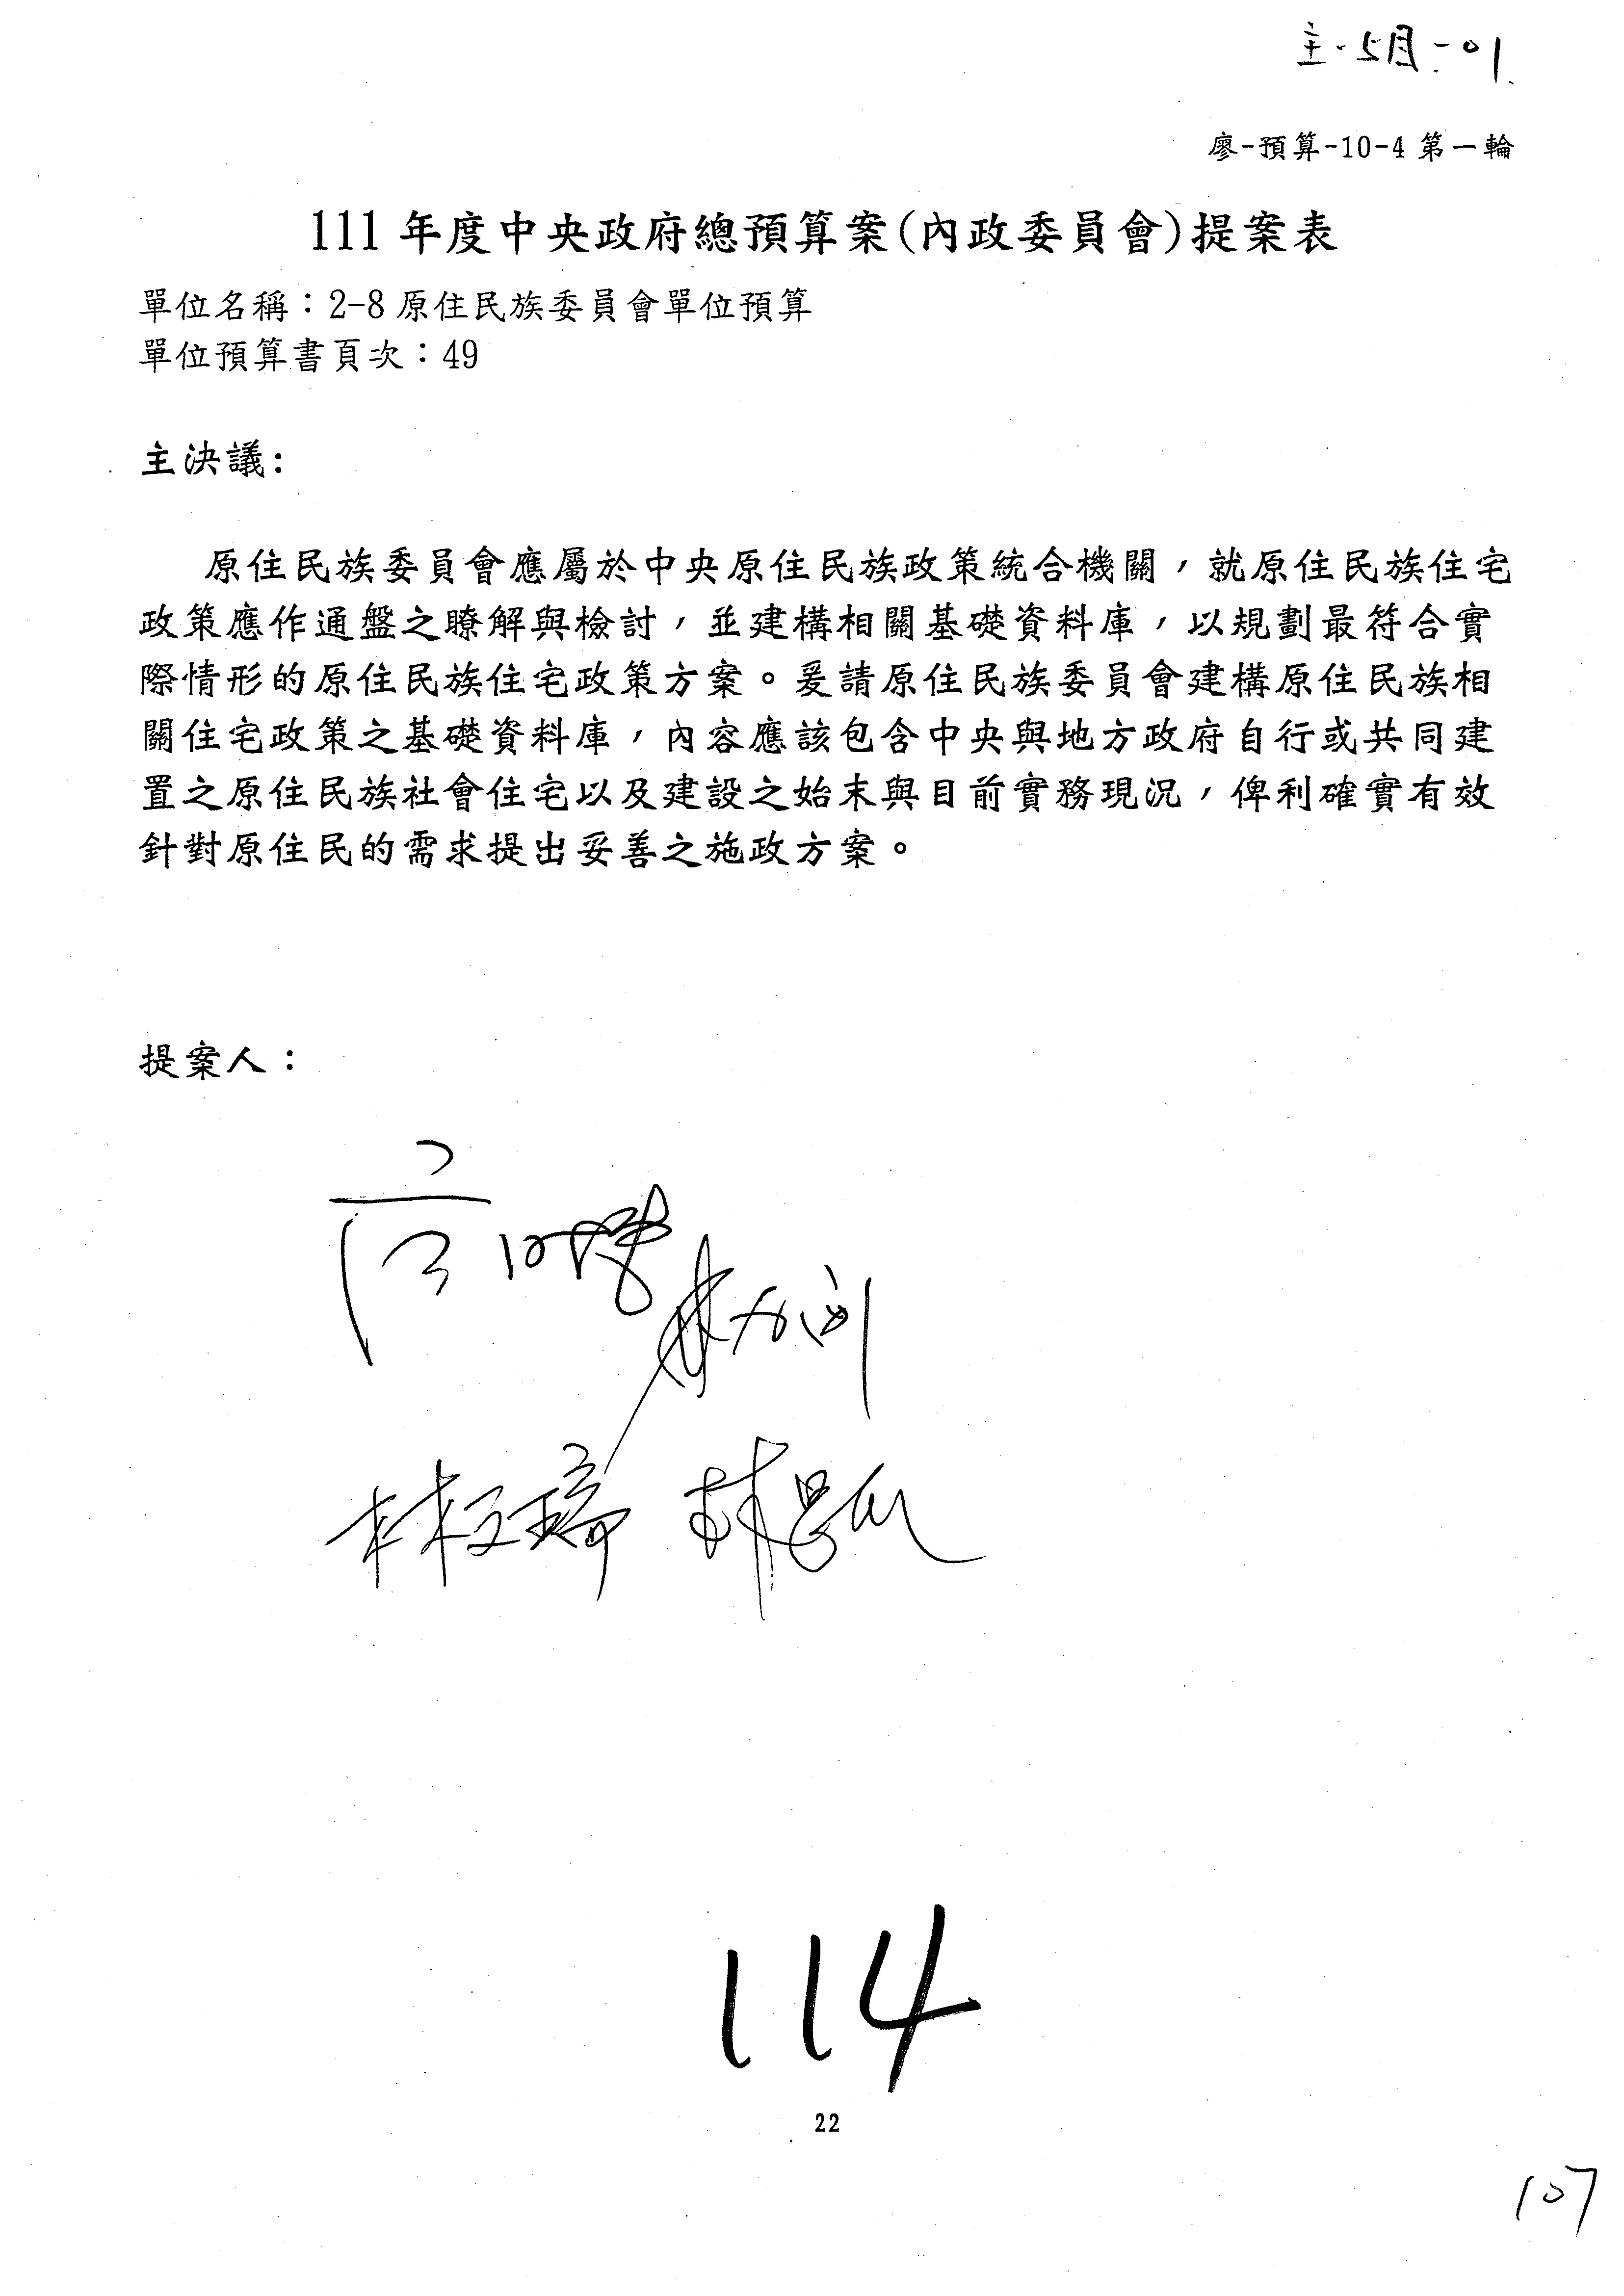 廖-預算-10-4 第一輪
111 年度中央政府總預算案(內政委員會)提案表
單位名稱：2-8 原住民族委員會單位預算
單位預算書頁次：49
主決議:
原住民族委員會應屬於中央原住民族政策統合機關，就原住民族住宅
政策應作通盤之瞭解與檢討，並建構相關基礎資料庫，以規劃最符合實
際情形的原住民族住宅政策方案。爰請原住民族委員會建構原住民族相
關住宅政策之基礎資料庫，內容應該包含中央與地方政府自行或共同建
置之原住民族社會住宅以及建設之始末與目前實務現況，俾利確實有效
針對原住民的需求提出妥善之施政方案。
提案人：
林文瑞 林思銘
114
22
107